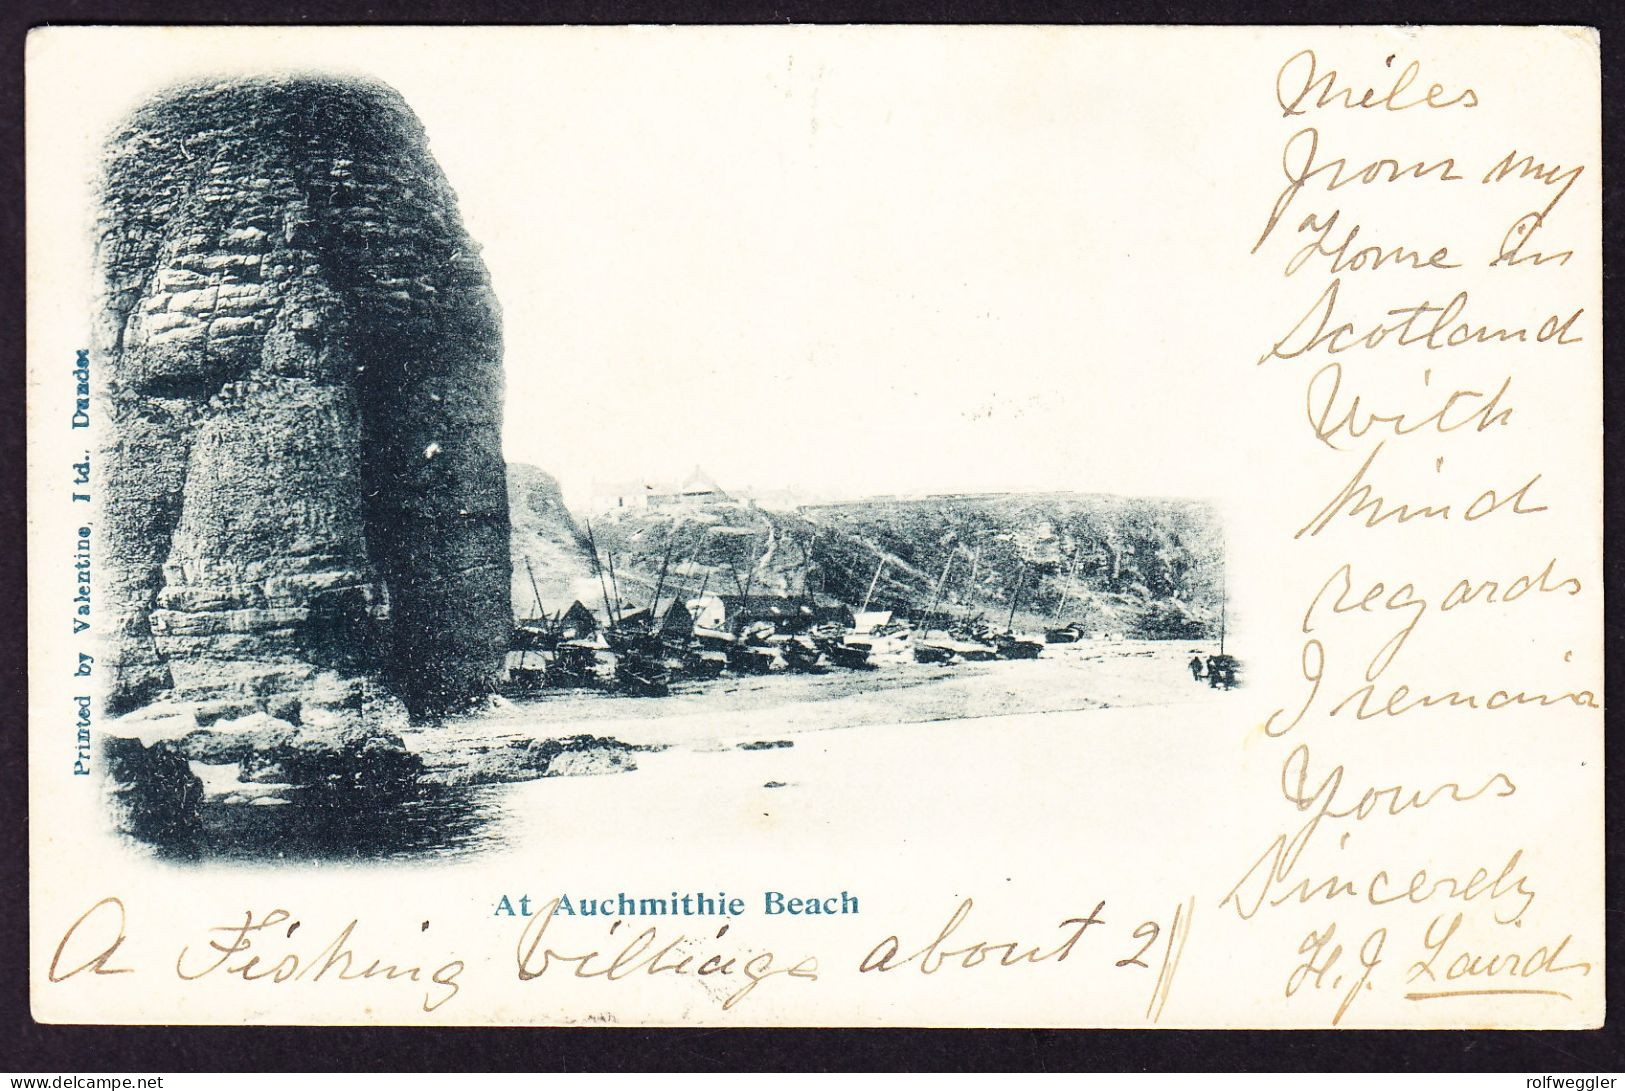 Printed by Valentine, Ltd., Dundee
At Auchmithie Beach
A Fishing village about 2
Miles
from my
Home in
Scotland
With
kind
regards
I remain
Yours
Sincerely
H. J. Laird
delcampe.net
rolfweggler